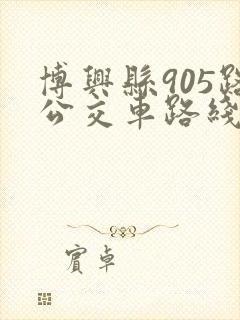 博興縣905路
公交車路綫
賓卓